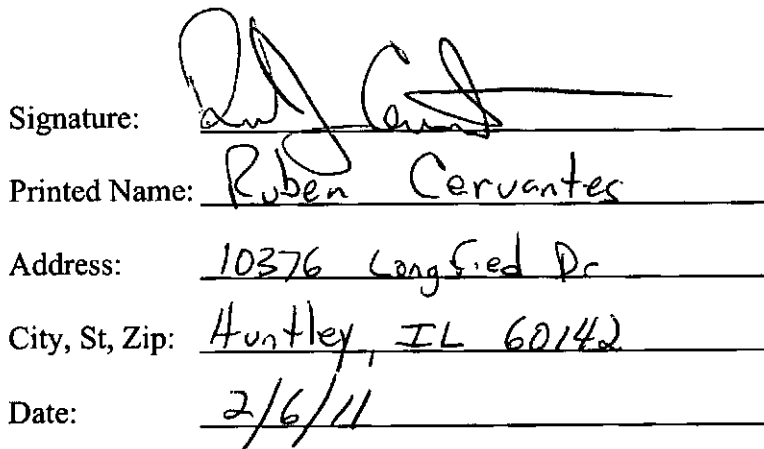 Signature:
Printed Name: Ruben Cervantes
Address: 10376 Longfied Dr
City, St, Zip: Huntley, IL 60142
Date: 2/6/11